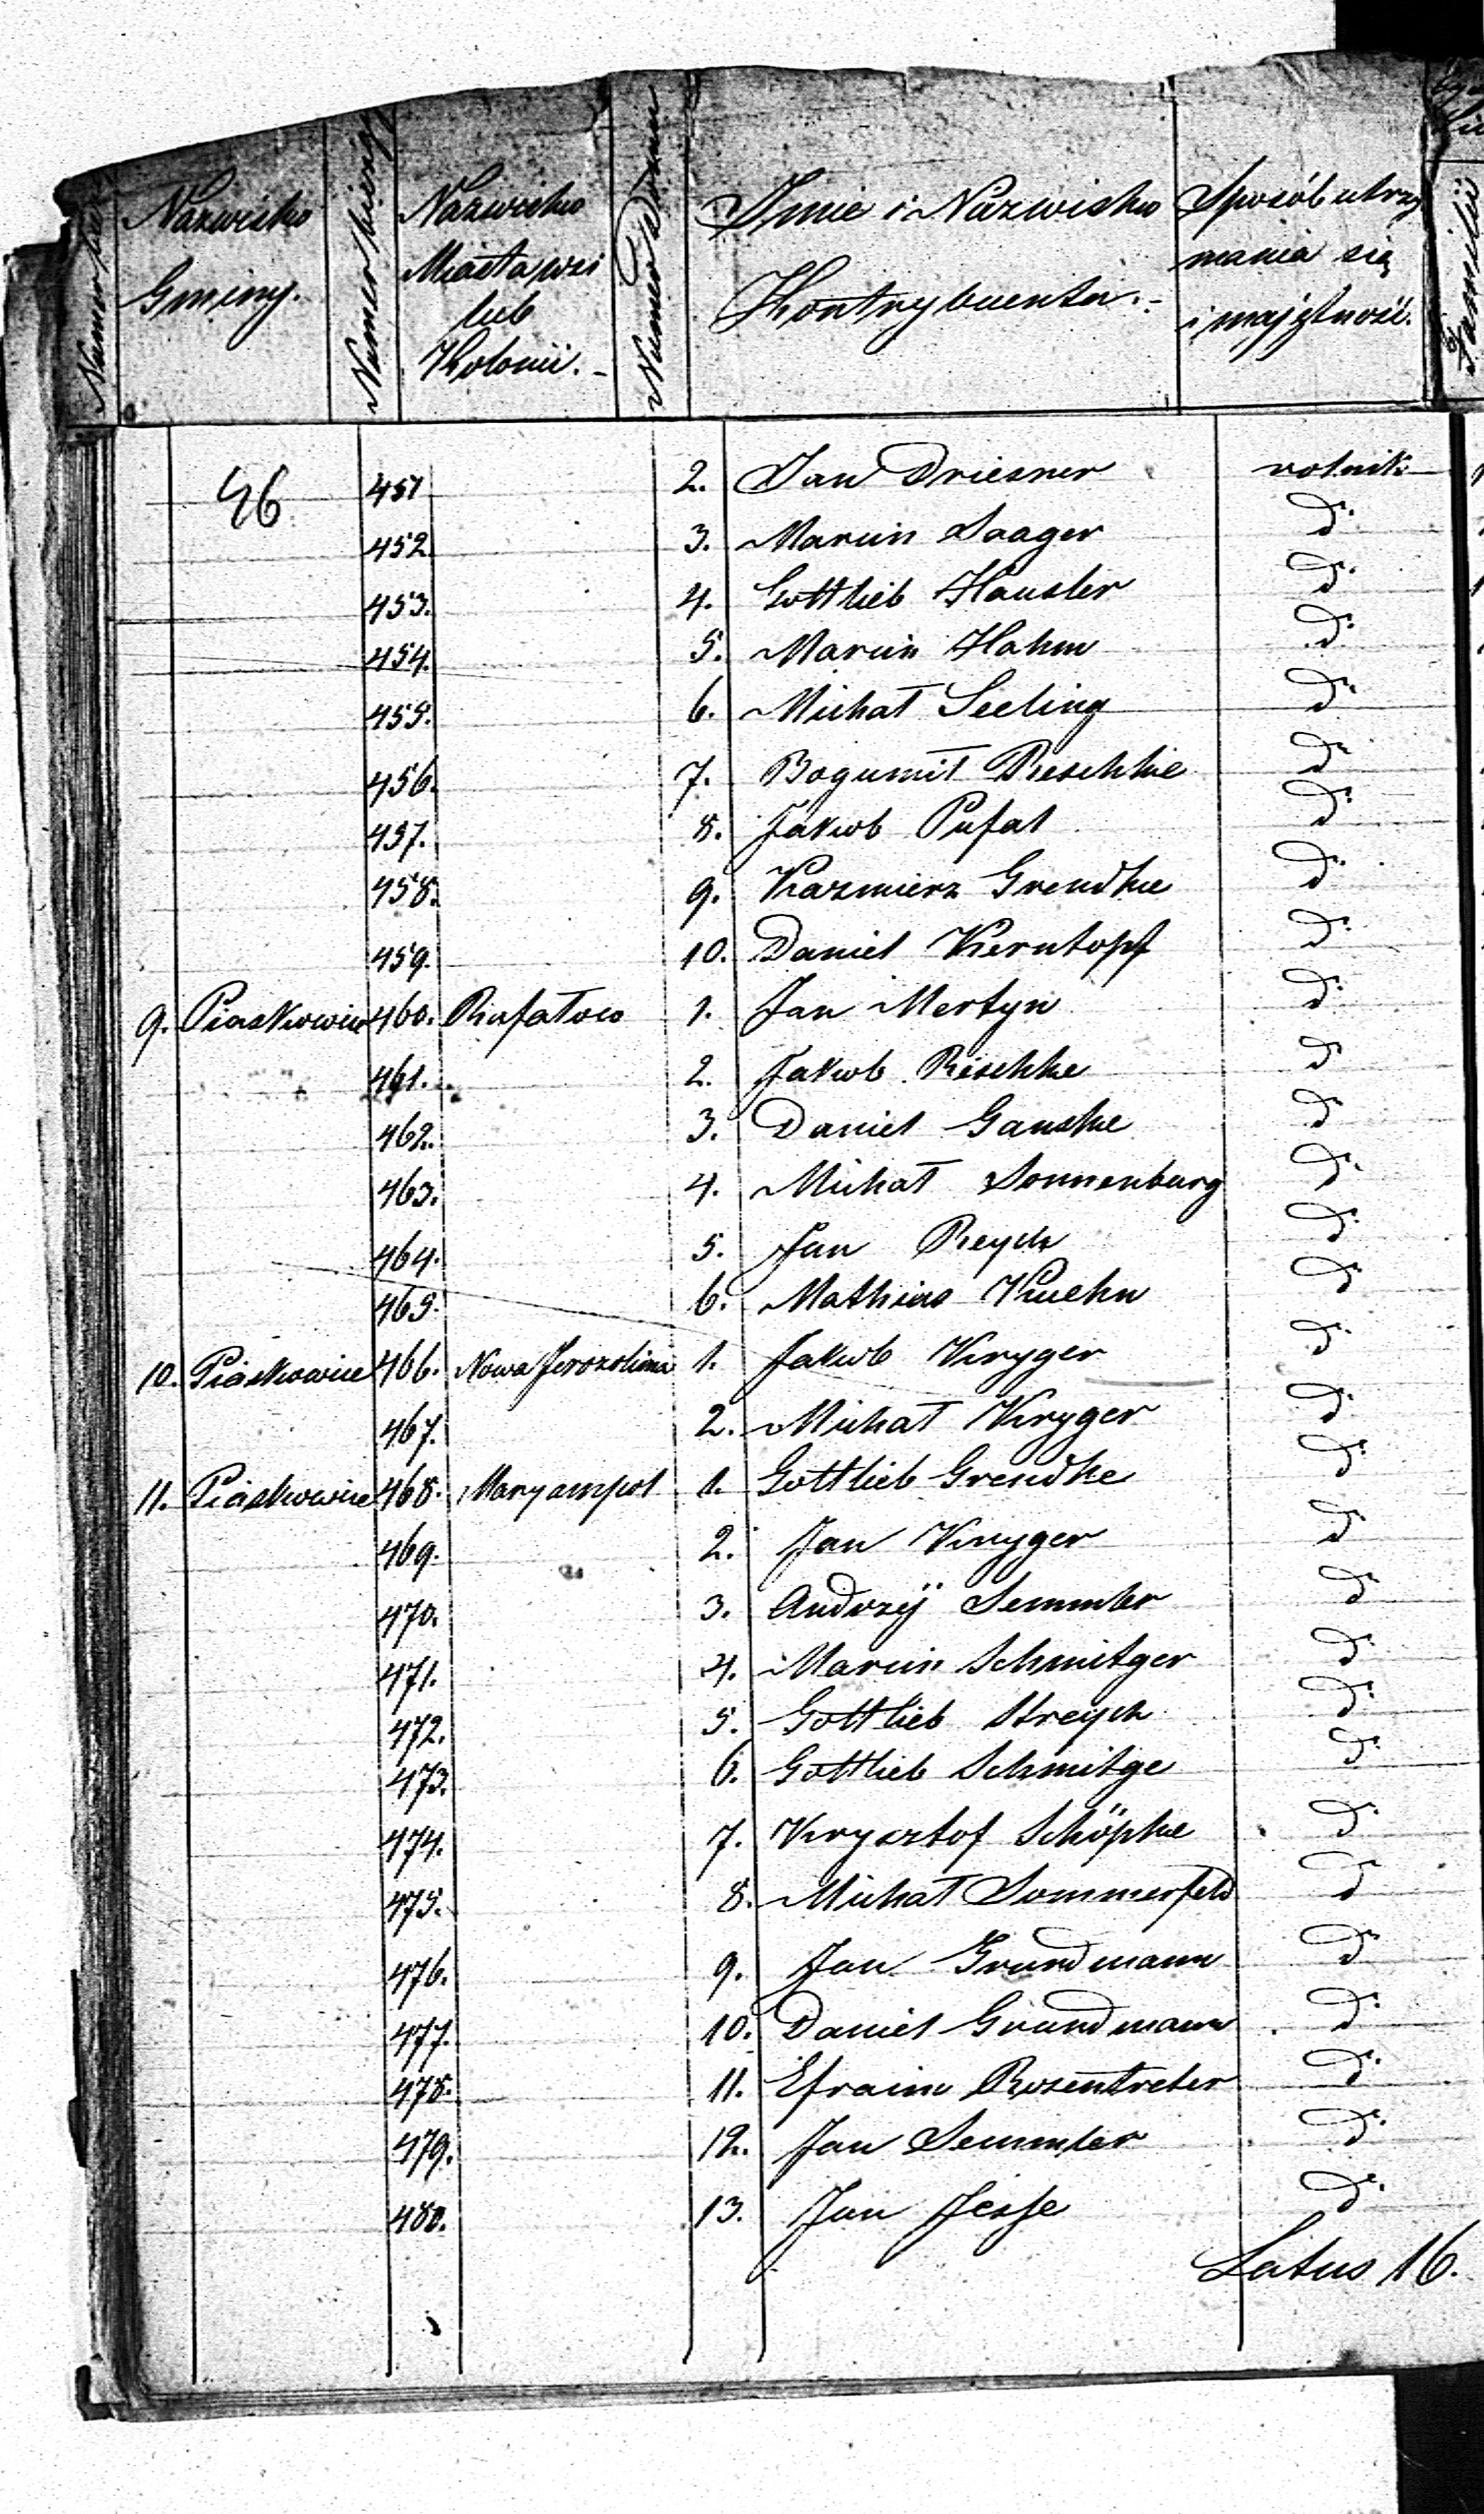 Nazwisko Gminy.
Numer bieżący
Nazwisko Miasta, wsi lub Kolonii. -
Numer Domu
Imie i Nazwisko Kontrybuenta. -
Sposób utrzymania się i majętność.
Familii
46 451 2. Jan Driesner rolnik
452. 3. Marcin Saager d°
453. 4. Gottlieb Hausler d°
454. 5. Marcin Hahm d°
455. 6. Michał Seeling d°
456. 7. Bogumił Reschke d°
457. 8. Jakub Pufal d°
458. 9. Kazmierz Grendke d°
459. 10. Daniel Kerntopf d°
9. Piaskowice 460. Rafałow 1. Jan Mertyn d°
461. 2. Jakub Reschke d°
462. 3. Daniel Ganske d°
463. 4. Michał Sonnenburg d°
464. 5. Jan Reych d°
465. 6. Mathias Kuehn d°
10. Piaskowice 466. Nowa Jerozolima 1. Jakub Kryger d°
467. 2. Michał Kryger d°
11. Piaskowice 468. Maryampol 1. Gottlieb Grendke d°
469. 2. Jan Kryger d°
470. 3. Andrzÿ Semmler d°
471. 4. Marcin Schmitger d°
472. 5. Gottlieb Streych d°
473. 6. Gottlieb Schmitge d°
474. 7. Krysztof Schöpke d°
475. 8. Michał Sommerfeld d°
476. 9. Jan Grundmann d°
477. 10. Daniel Grundmann d°
478. 11. Efraim Rosentreter d°
479. 12. Jan Semmler d°
480. 13. Jan Jesse d°
Latus 16.